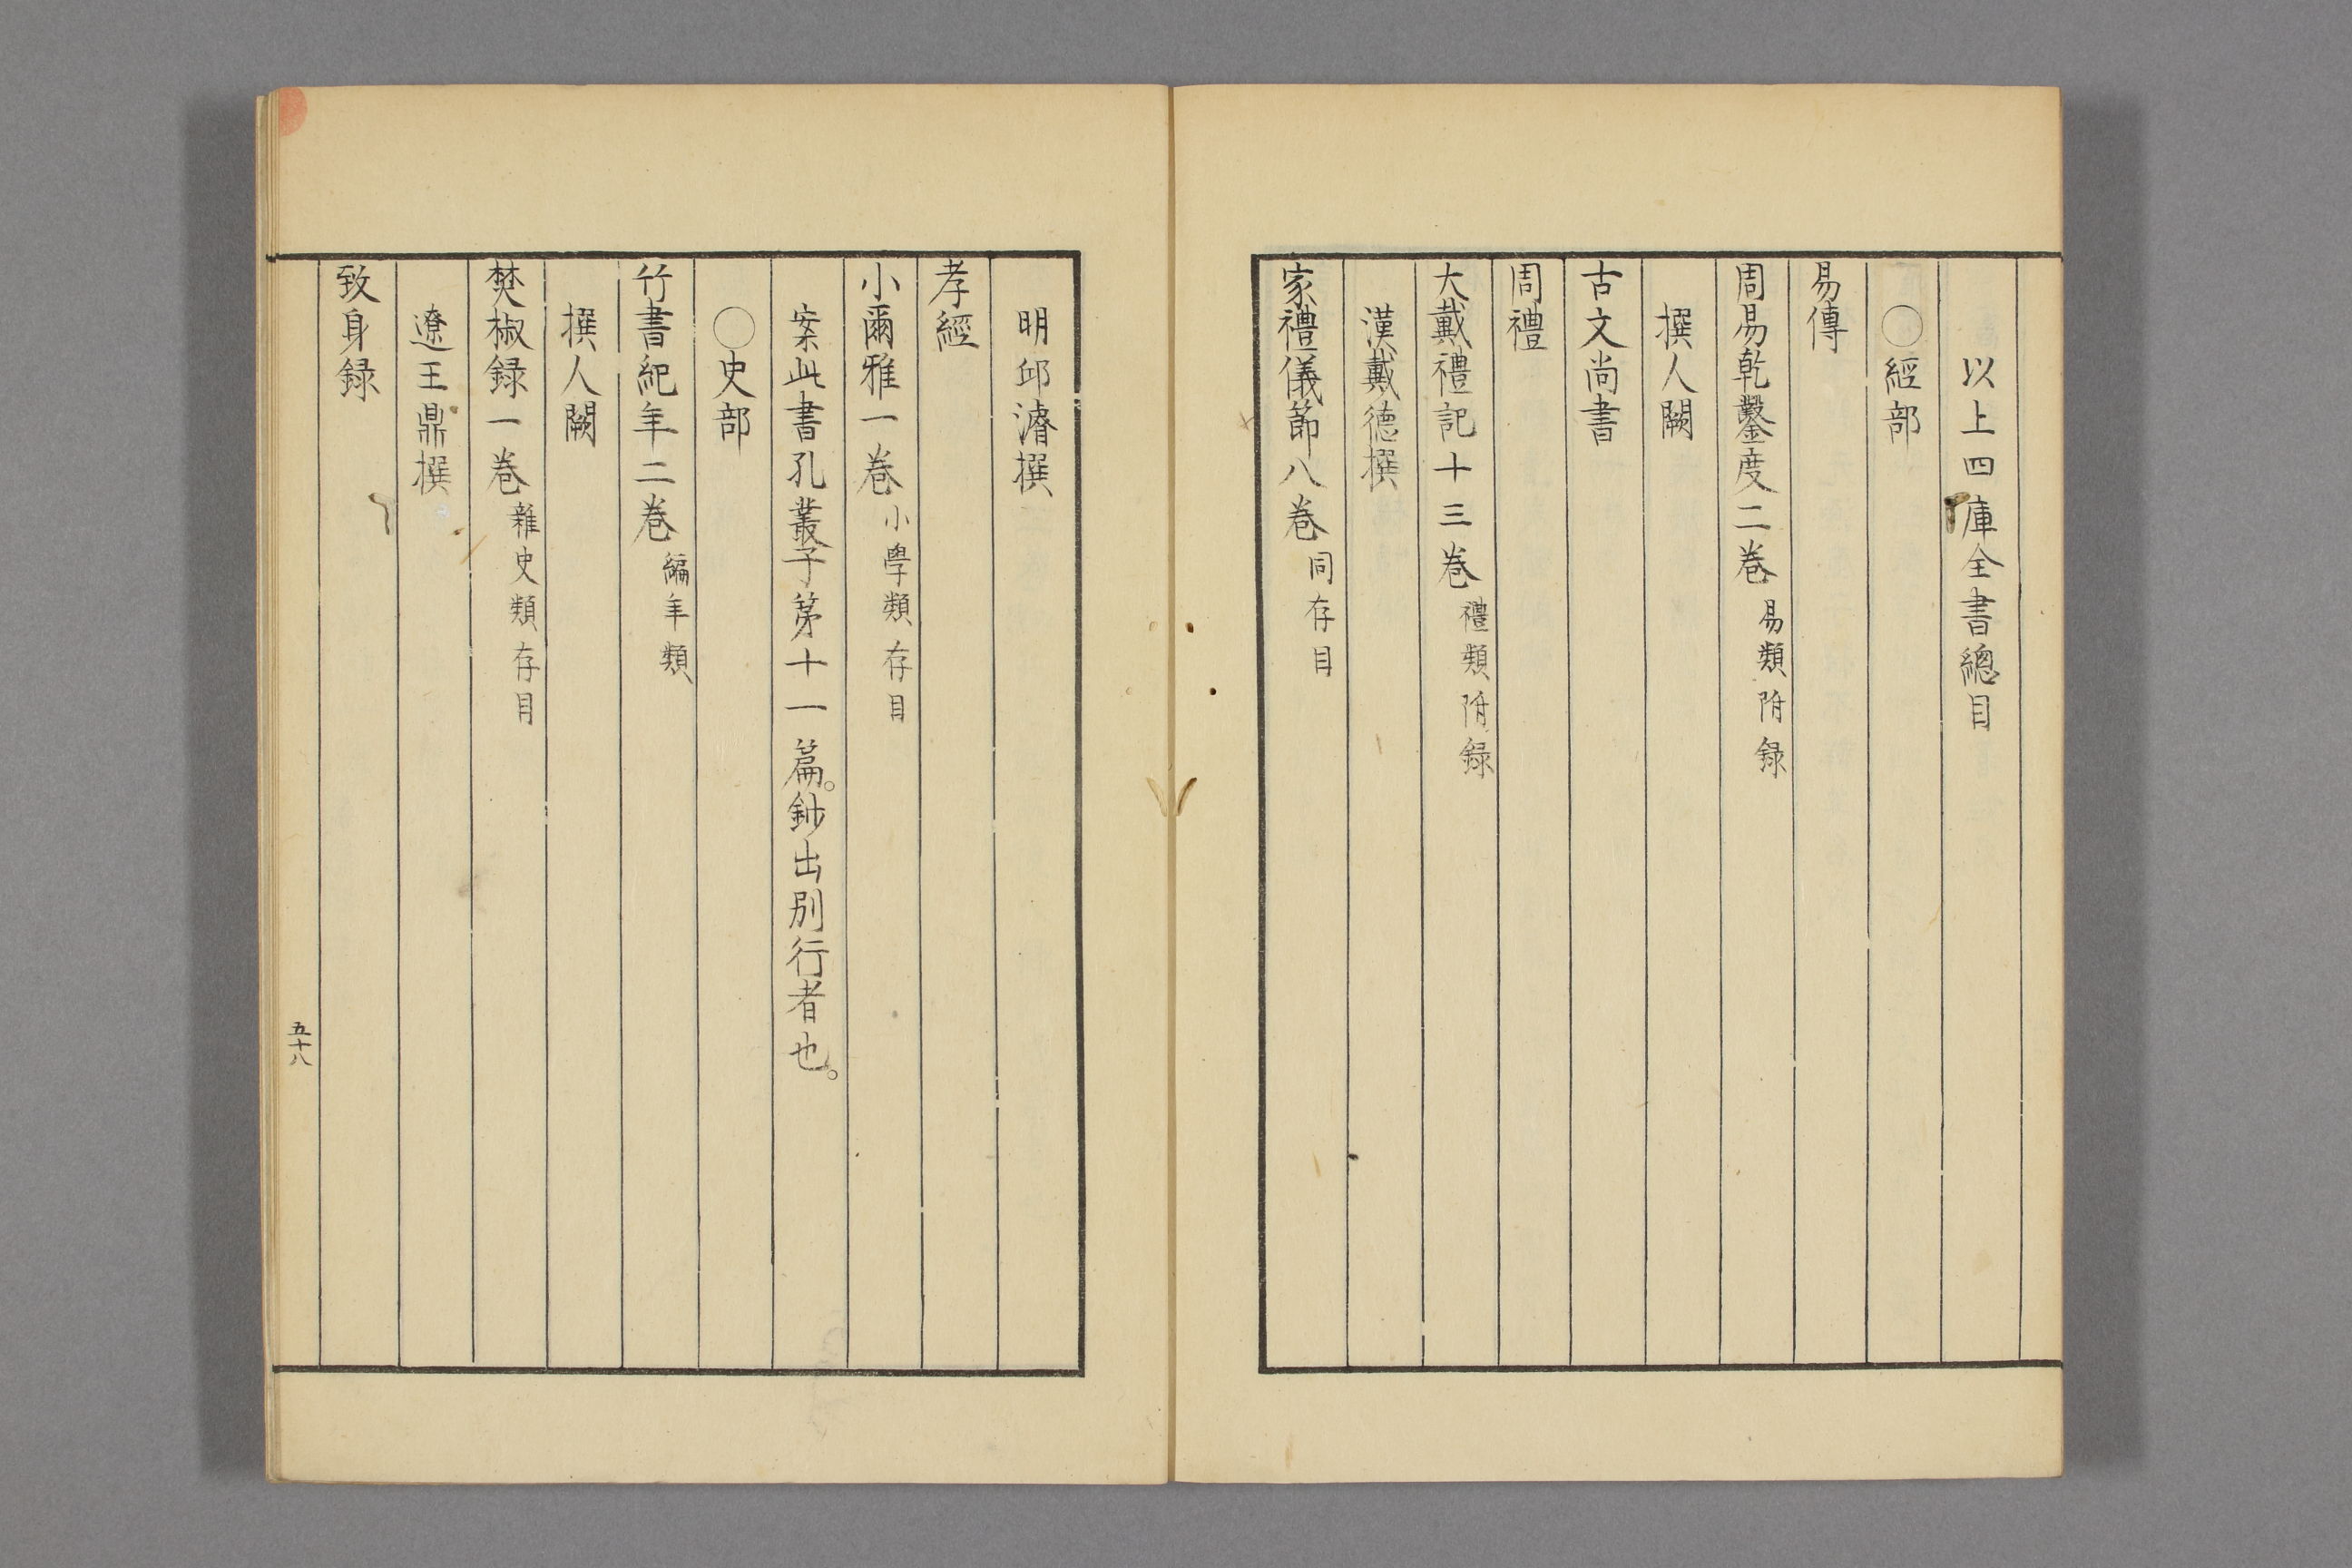 以上四庫全書總目
○經部
易傳
周易乾鑿度二巻易類附録
撰人闕
古文尚書
周禮
大戴禮記十三巻禮類附録
漢戴德撰
家禮儀節八巻同存目
明邱濬撰
孝經
小爾雅一巻小學類存目
案此書孔叢子第十一篇。鈔出別行者也。
○史部
竹書紀年二巻編年類
撰人闕
焚椒録一巻雜史類存目
遼王鼎撰
致身録
五十八